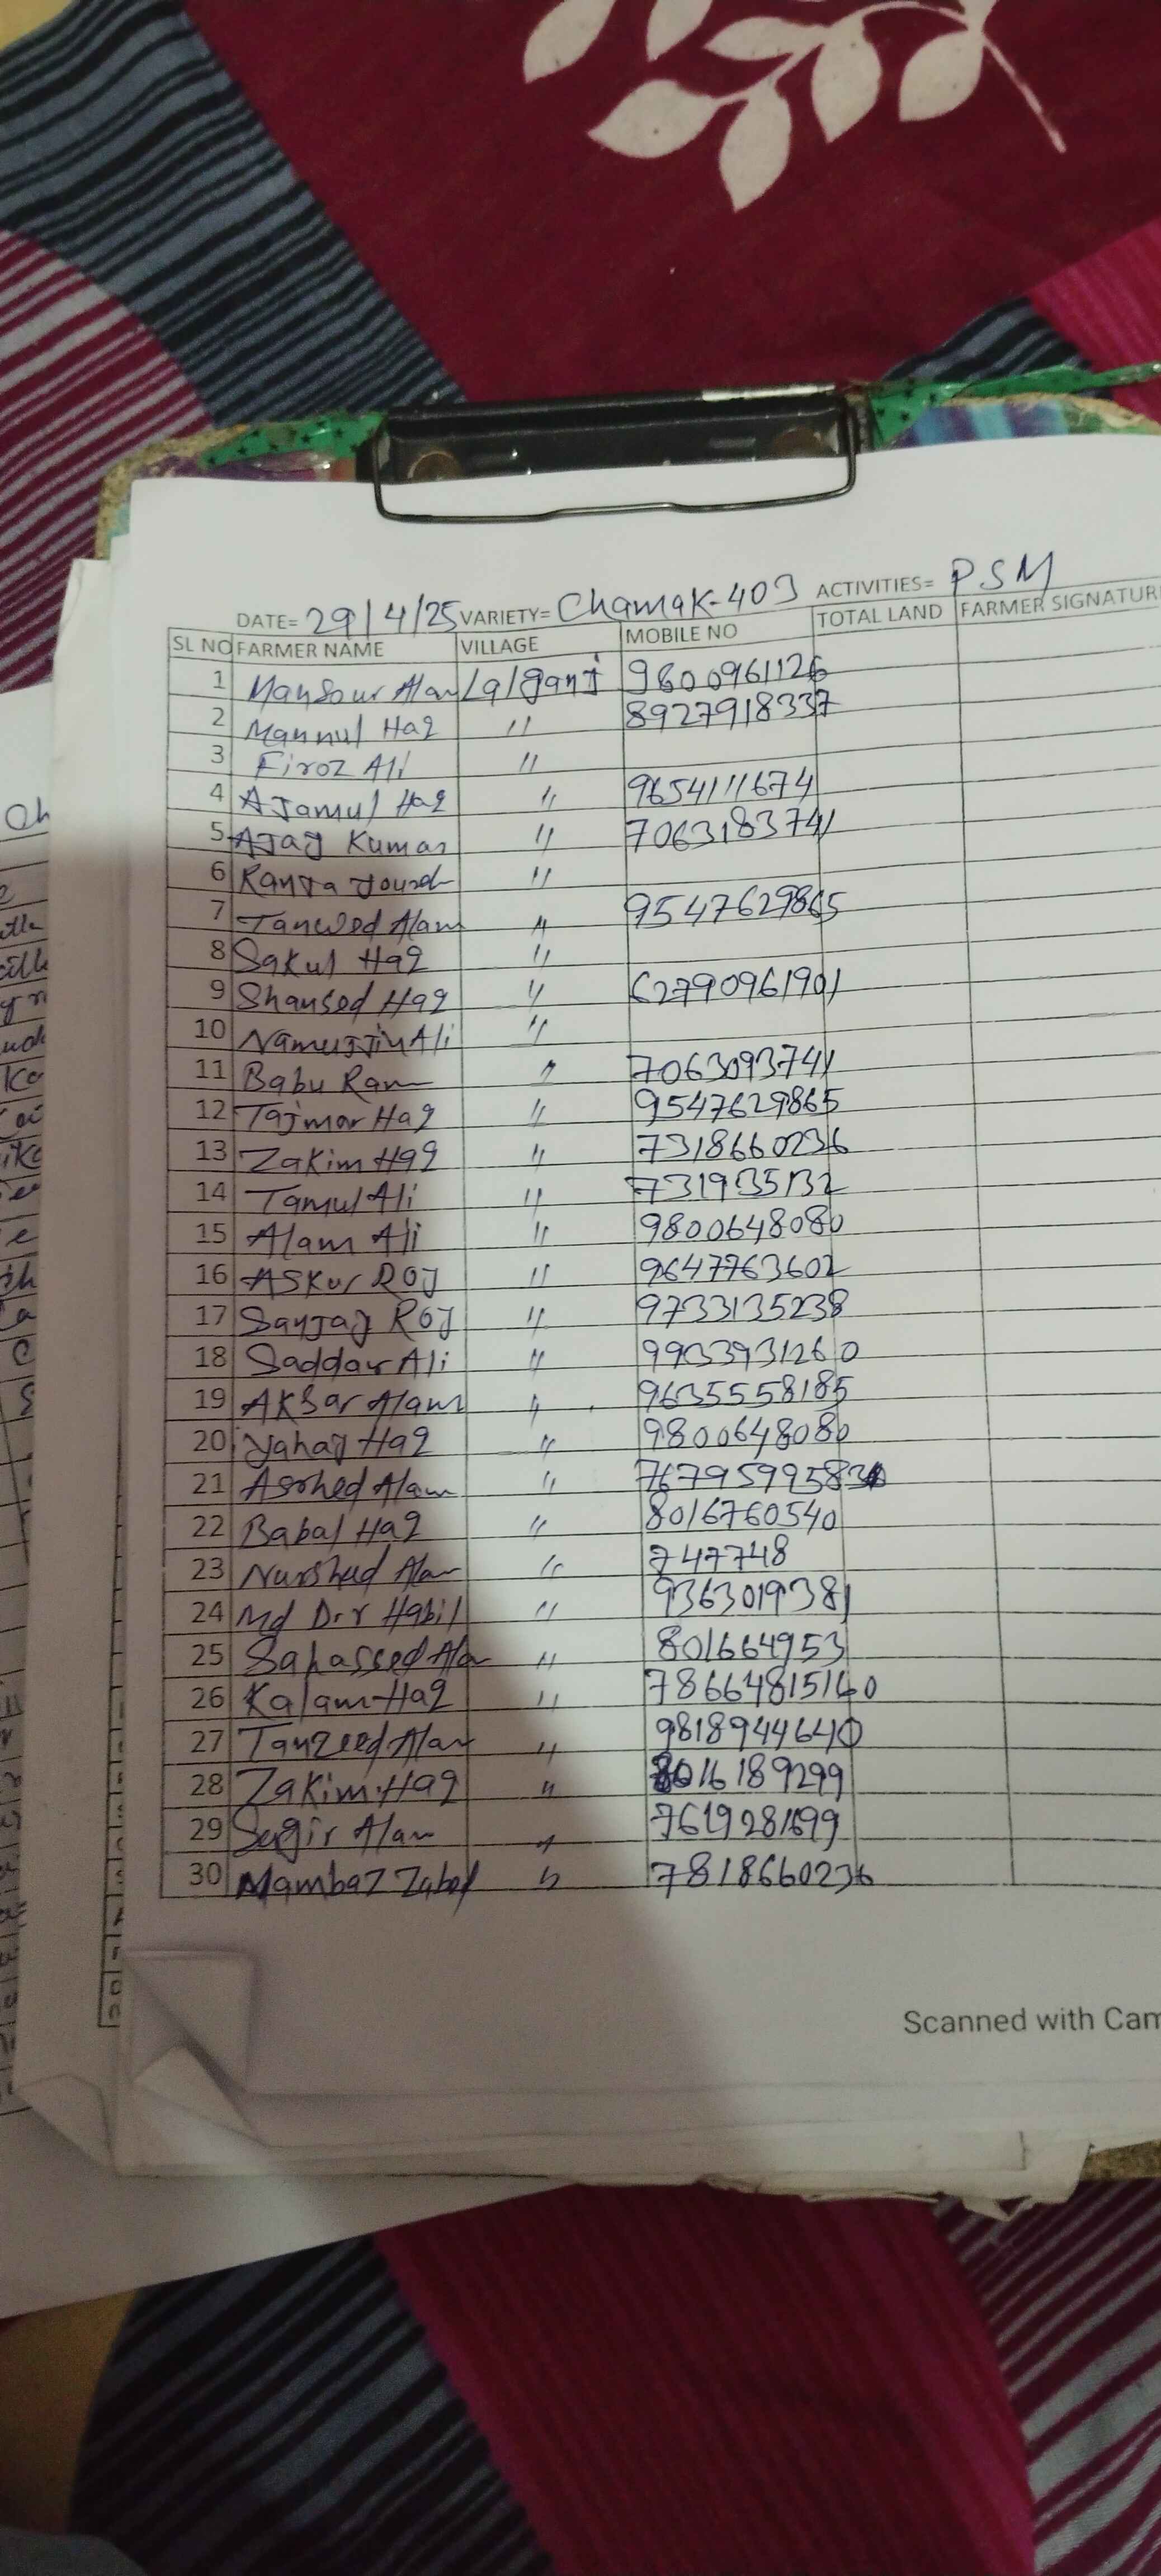 DATE= 29/4/25 VARIETY= Chamak-403 ACTIVITIES= PSM
SL NO FARMER NAME VILLAGE MOBILE NO TOTAL LAND FARMER SIGNATUR
1 Mansour Alam Lalganj 9800961126
2 Mannul Haq " 8927918337
3 Firoz Ali "
4 AJamul Haq " 9654111674
5 AJay Kumar " 7063183741
6 "
7 Tanwed Alam " 9547629865
8 Sakul Haq "
9 Shansed Haq " 62790961901
10 Ali "
11 Babu Ram " 7063093741
12 Tajmar Haq " 9547629865
13 Zakim Haq " 7318660236
14 Tamul Ali " 731935132
15 Alam Ali " 9800648080
16 Askur Roy " 9647763602
17 Sanjay Roy " 9733135238
18 Saddar Ali " 9933931260
19 Aksar Alam " 9635558185
20 Yahay Haq " 9800648080
21 Asrhed Alam "
22 Babal Haq " 8016760540
23 Nurshed Alam " 747748
24 Md Habil " 9363019381
25 Sahassed Alam " 801664953
26 Kalam Haq " 78664815160
27 Tanzeed Alam " 9818944640
28 Zakim Haq " 8016189299
29 Sagir Alam " 7619281699
30 Mambaz " 7818660236
Scanned with Cam